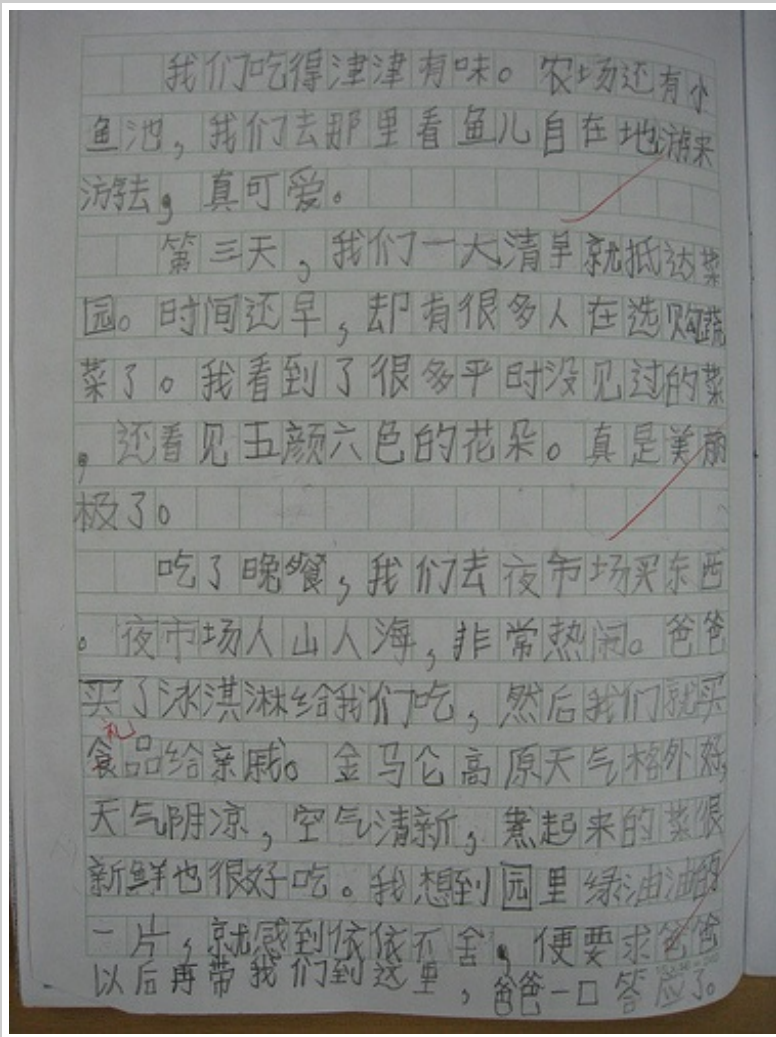 我们吃得津津有味。农场还有小
鱼池，我们去那里看鱼儿自在地游来
游去，真可爱。
第三天，我们一大清早就抵达菜
园。时间还早，却有很多人在选购蔬
菜了。我看到了很多平时没见过的菜
，还看见五颜六色的花朵。真是美丽
极了。
吃了晚餐，我们去夜市场买东西
。夜市场人山人海，非常热闹。爸爸
买了冰淇淋给我们吃，然后我们就买
礼
食品给亲戚。金马仑高原天气格外好，
天气阴凉，空气清新，煮起来的菜很
新鲜也很好吃。我想到园里绿油油的
一片，就感到依依不舍，便要求爸爸
以后再带我们到这里，爸爸一口答应了。